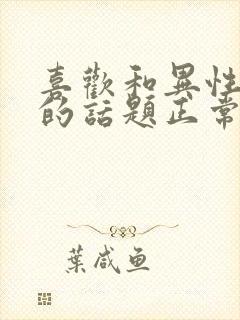 喜歡和異性
的話題正常
葉咸魚